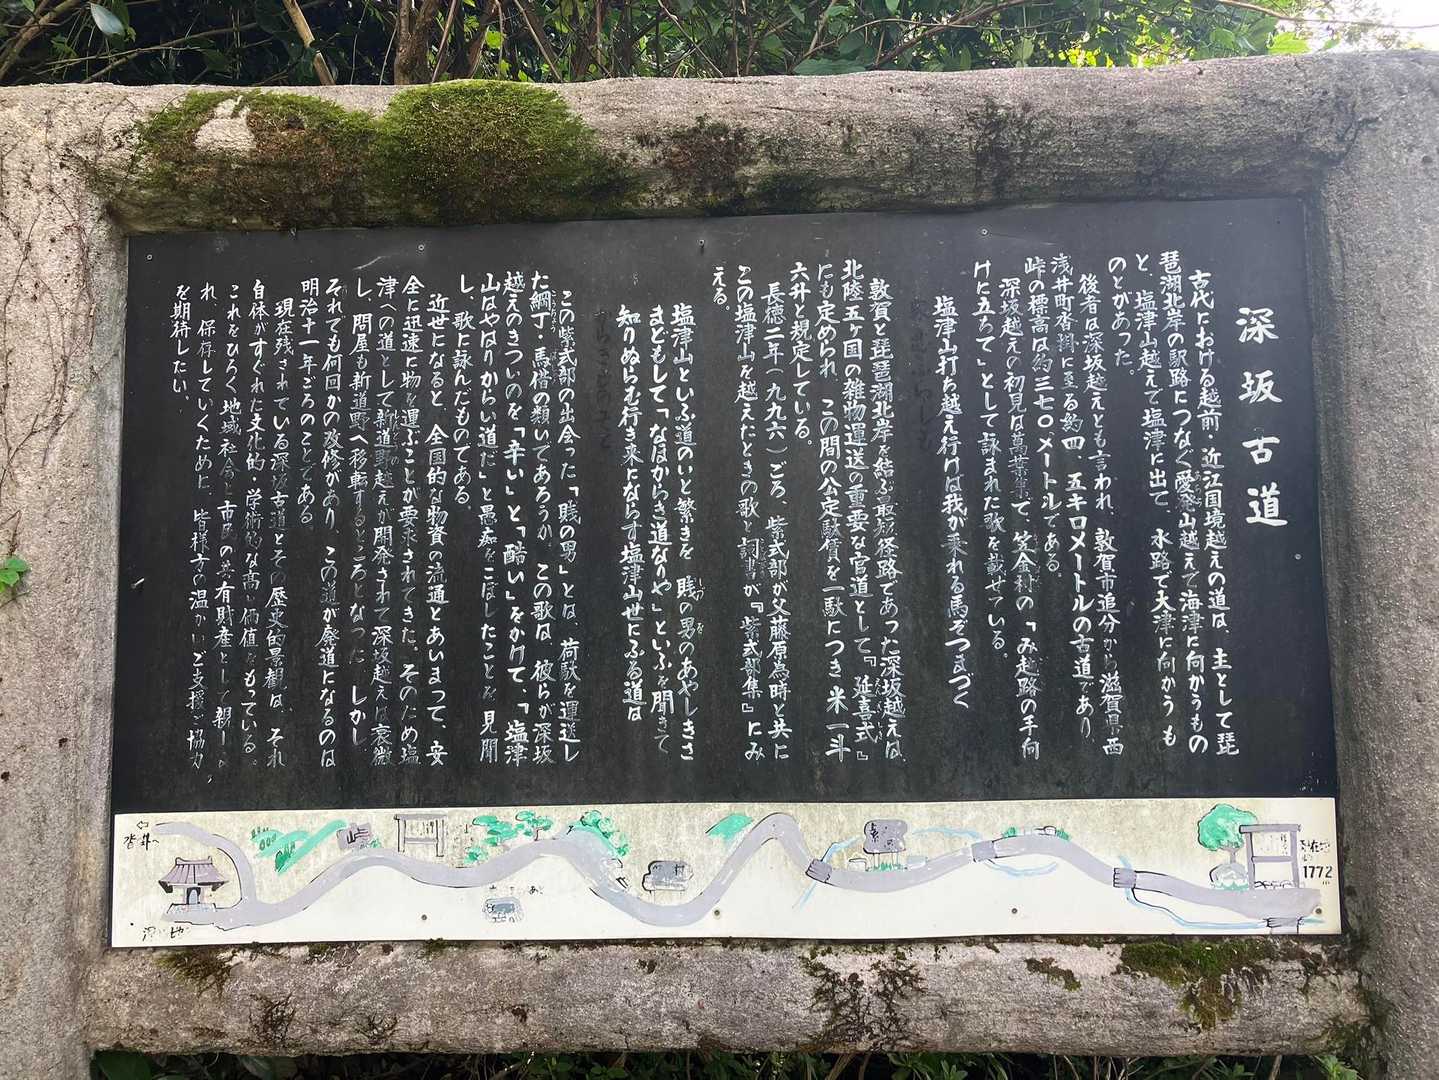 深坂古道
古代における越前・近江国境越えの道は、主として琵
琶湖北岸の駅路につなぐ愛発山越えで海津に向かうもの
と、塩津山越えで塩津に出て、水路で大津に向かうも
のとがあった。
後者は深坂越えとも言われ、敦賀市追分から滋賀県西
浅井町沓掛に至る約四、五キロメートルの古道であり
峠の標高は約三七〇メートルである。
深坂越えの初見は萬葉集で、笠金村の「み越路の手向
けに立ちて」として詠まれた歌を載せている。
塩津山打ち越え行けば我が乗れる馬ぞつまづく
敦賀と琵琶湖北岸を結ぶ最短径路であった深坂越えは、
北陸五ヶ国の雑物運送の重要な官道として『延喜式』
にも定められ、この間の公定駄賃を一駄につき米一斗
六升と規定している。
長徳二年(九九六)ごろ、紫式部が父藤原為時と共に
この塩津山を越えたときの歌と詞書が『紫式部集』にみ
える。
塩津山といふ道のいと繁きを 賤の男のあやしきさ
まどもして「なほからき道なりや」といふを聞きて
知りぬらむ行き来にならす塩津山世にふる道は
この紫式部の出会った「賤の男」とは、荷駄を運送し
た綱丁・馬借の類いであろうか。この歌は、彼らが深坂
越えのきついのを「辛い」と「酷い」をかけて、「塩津
山はやはりからい道だ」と愚痴をこぼしたことを見聞
し、歌に詠んだものである。
近世になると、全国的な物資の流通とあいまって、安
全に迅速に物を運ぶことが要求されてきた。そのため塩
津への道として新道野越えが開発されて深坂越えは衰微
し、問屋も新道野へ移転するところとなった。しかし
それでも何回かの改修があり この道が廃道になるのは
明治十一年ごろのことである。
現在残されている深坂古道とその歴史的景観は、それ
自体がすぐれた文化的・学術的な高い価値をもっている。
これをひろく、地域社会と市民の共有財産として親しま
れ、保存していくために、皆様方の温かいご支援ご協力
を期待したい。
沓掛へ
1772